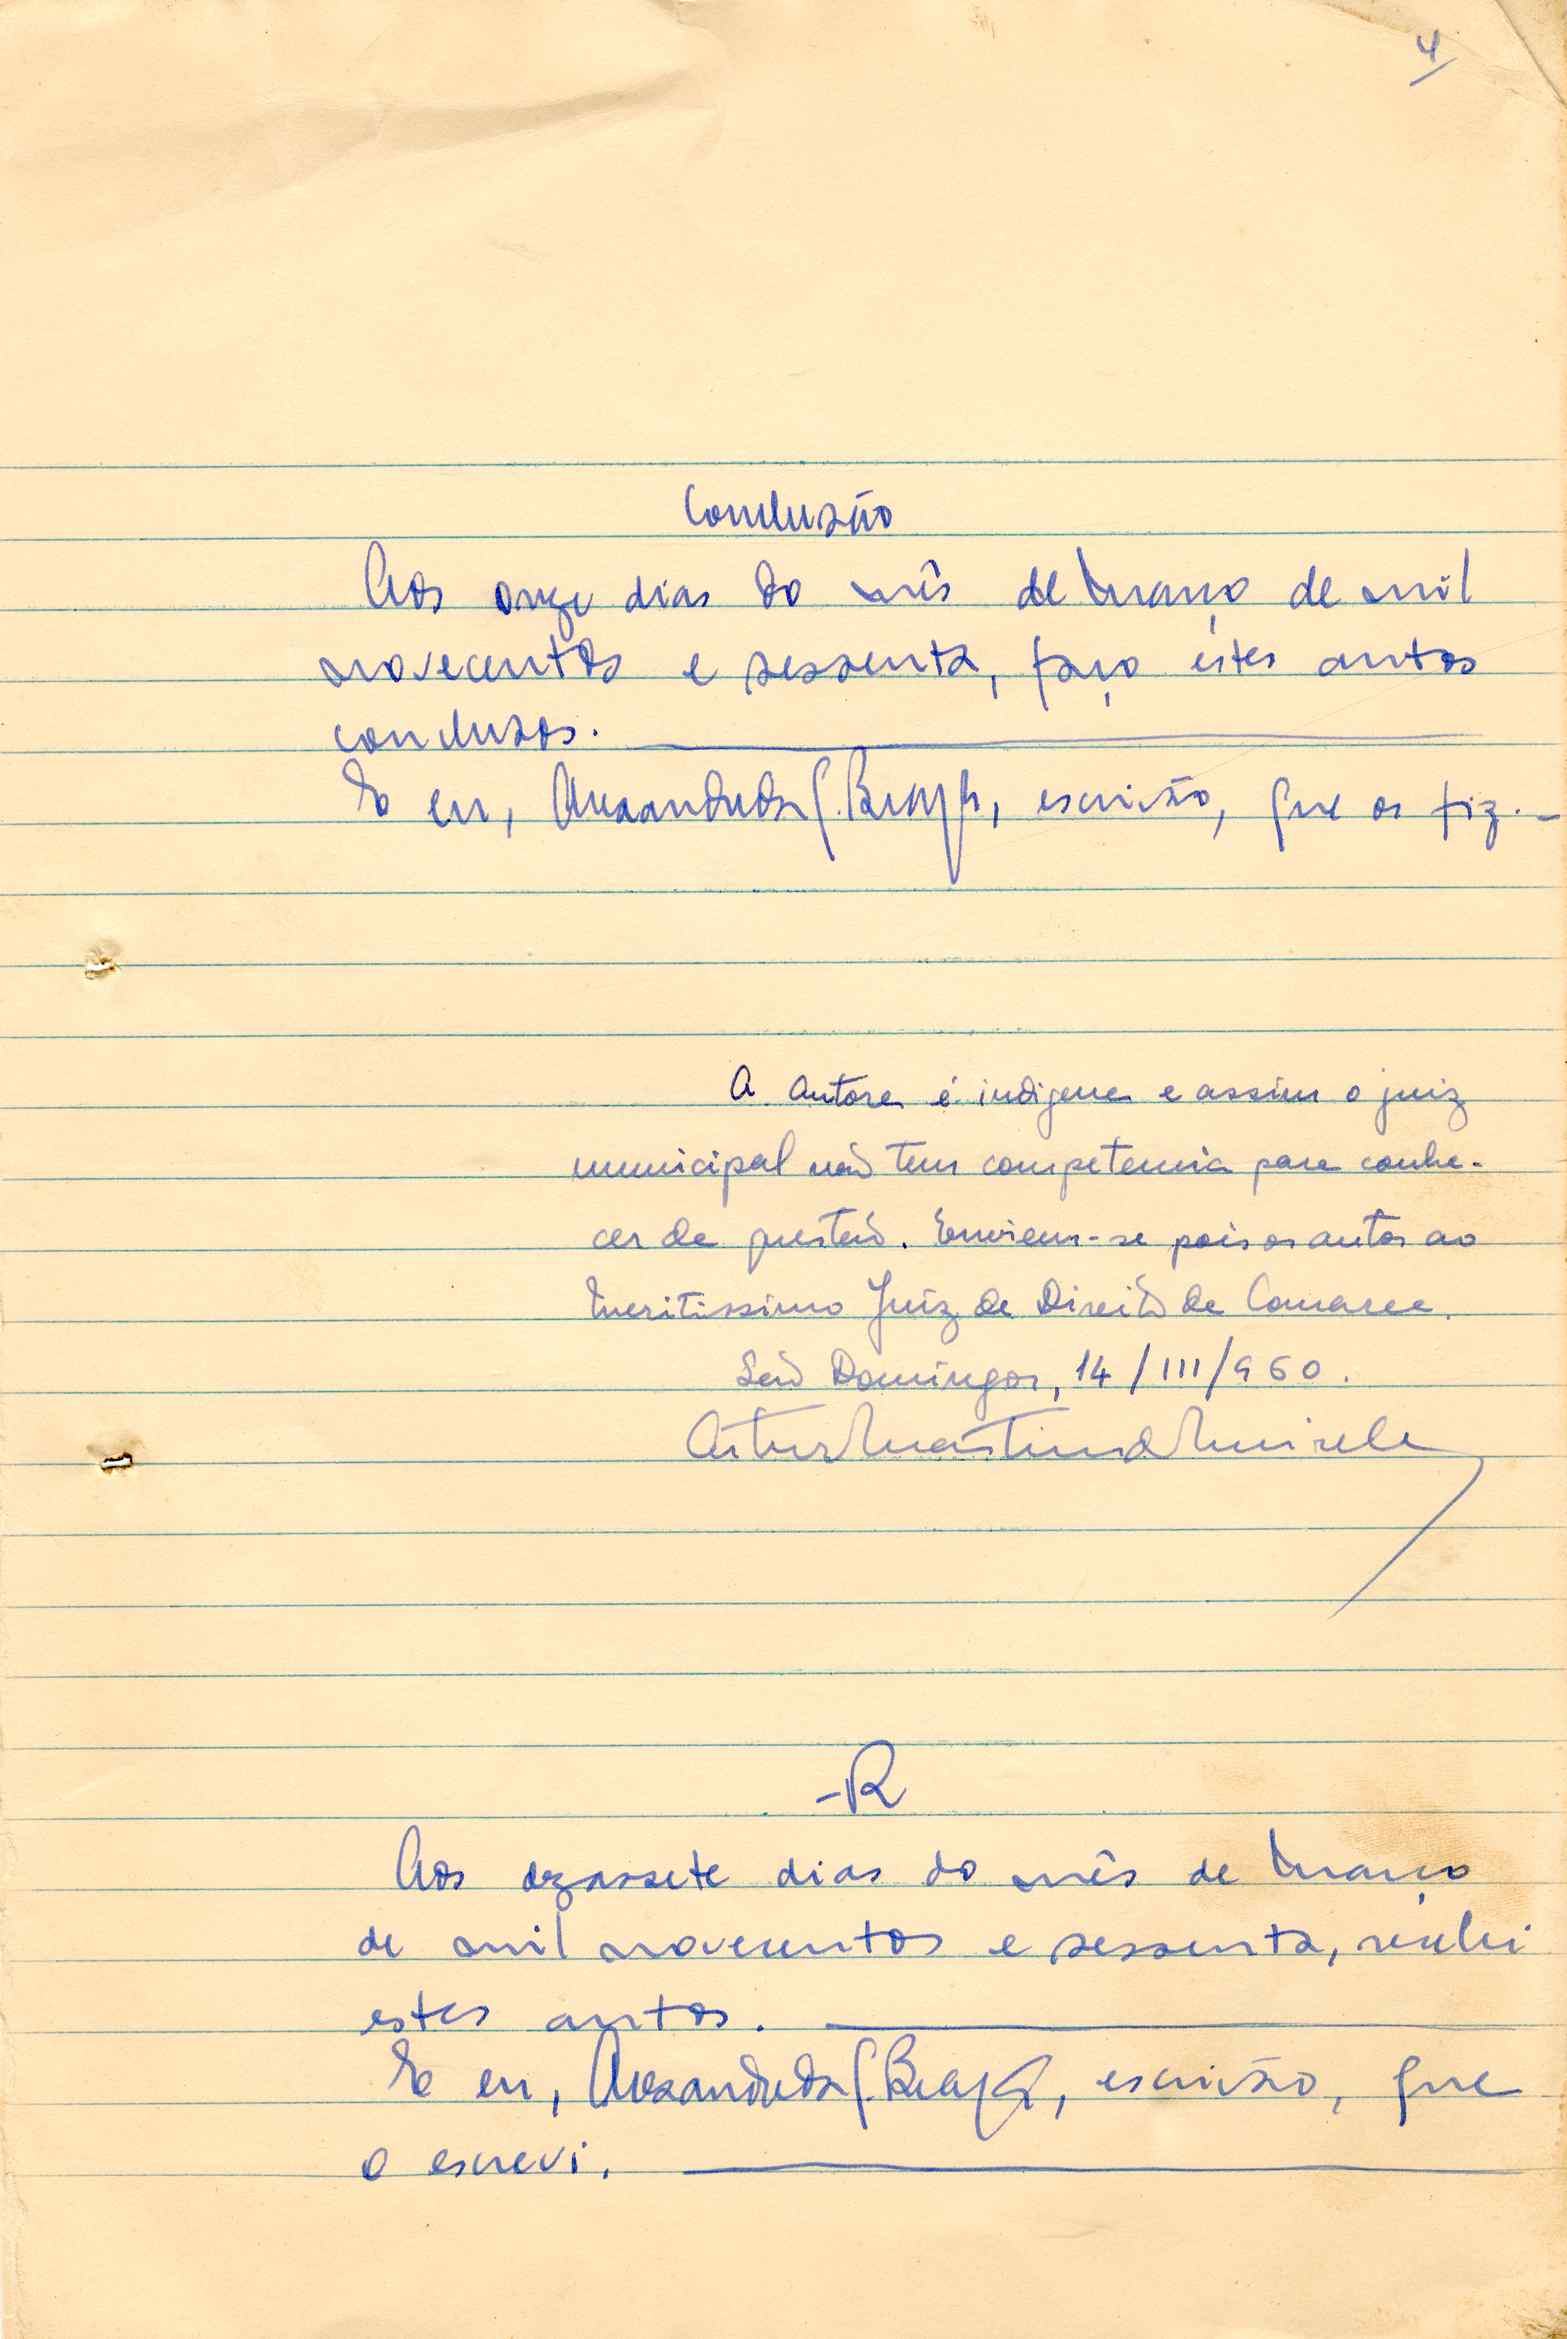 4
Conclusão
Aos onze dias do mês de Março de mil
novecentos e sessenta, faço êstes autos
conclusos.
E eu, escrivão, que os fiz.-
A Autora é indigena e assim o juiz
municipal não tem competencia para conhe-
cer da questão. Enviem-se pois os autos ao
Meritissimo Juiz de Direito da Comarca.
São Domingos, 14/III/960.
Artur Martins de Meirele
-R
Aos dezassete dias do mês de Março
de mil novecentos e sessenta, recebi
estes autos.
E eu, escrivão, que
o escrevi.